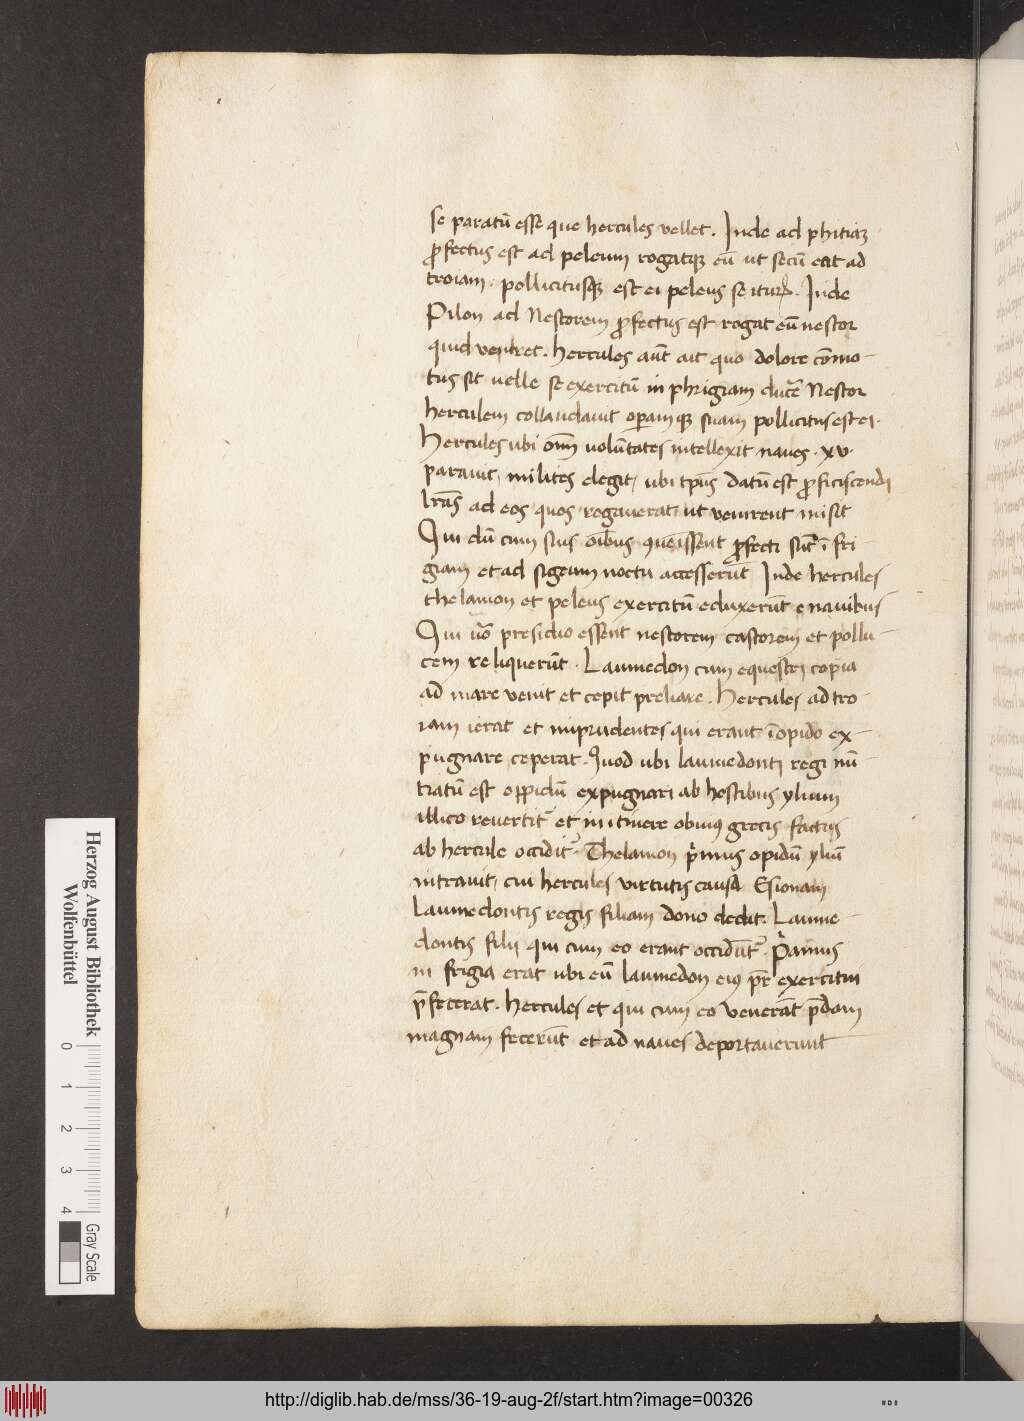 se paratū esse que hercules vellet. Inde ad phitiaꝫ
ꝓfectus est ad peleum rogatqꝫ eū ut secū eat ad
troiam. pollicitusqꝫ est ei peleus se iturꝝ. Inde
Pilon ad Nestorem ꝓfectus est rogat eū nestor
quid veniret. hercules aūt ait quo dolore cōmo-
tus sit uelle se exercitū in phrigiam ducē Nestor
herculem collaudavit oꝑamqꝫ suam pollicitus est ei.
Hercules ubi oīm uolūtates intellexit naues. xv.
paravit, milites elegit, ubi tp̄us datū est ꝓficiscendi
lr̄as ad eos quos rogaverat, ut venirent misit
Qui dū cum suis oībus venissent ꝓfecti sūt ī fri-
giam et ad sigeum noctu accesserūt Inde hercules
thelamon et peleus exercitū eduxerūt e navibus
Qui uō presidio essent nestorem castorem et pollu-
cem reliquerūt. Laumedon cum equestri copia
ad mare venit et cepit preliare. Hercules ad tro-
iam ierat et imprudentes qui erant ī opido ex-
pugnare ceperat. Quod ubi laumedonti regi nū-
tiatū est oppidū expugnari ab hostibus ylium
illico revertit᷑ et in itinere obuiꝰ grecis factus
ab hercule occidit᷑. Thelamon pͥmus opidū yliū
intravit, cui hercules virtutis causa Esionam
Laumedontis regis filiam dono dedit. Laume-
dontis filij qui cum eo erant occidūt᷑. Pͥamus
in frigia erat ubi eū laumedon eiꝰ pr̄ exercitui
p̄fecerat. Hercules et qui cum eo venerāt p̄dam
magnam fecerūt et ad naues deportaverunt
Herzog August Bibliothek
Wolfenbüttel
0 1 2 3 4
Gray Scale
http://diglib.hab.de/mss/36-19-aug-2f/start.htm?image=00326